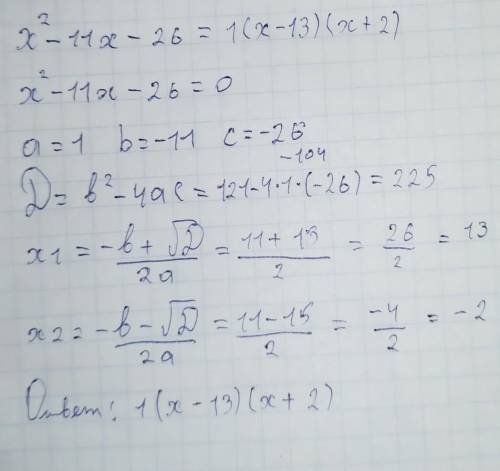 x² - 11x - 26 = 1(x - 13)(x + 2)
x² - 11x - 26 = 0
a = 1 b = -11 c = -26
-104
D = b² - 4ac = 121 - 4·1·(-26) = 225
x1 = (-b + √D)/2a = (11 + 15)/2 = 26/2 = 13
x2 = (-b - √D)/2a = (11 - 15)/2 = -4/2 = -2
Ответ: 1(x - 13)(x + 2)